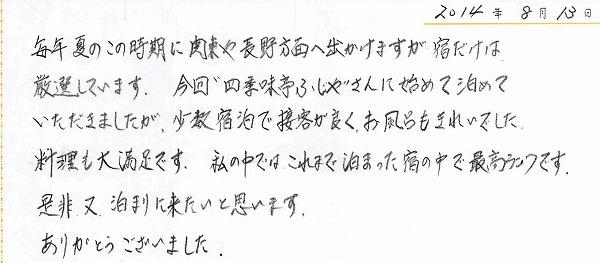 2014年 8月 13日
毎年夏のこの時期に関東や長野方面へ出かけますが宿だけは
厳選しています. 今回"四季味亭ふじや"さんに始めて泊めて
いただきましたが、少数宿泊で接客が良く、お風呂もきれいでした.
料理も大満足です. 私の中では、これまで泊まった宿の中で最高ランクです.
是非又泊まりに来たいと思います.
ありがとうございました.